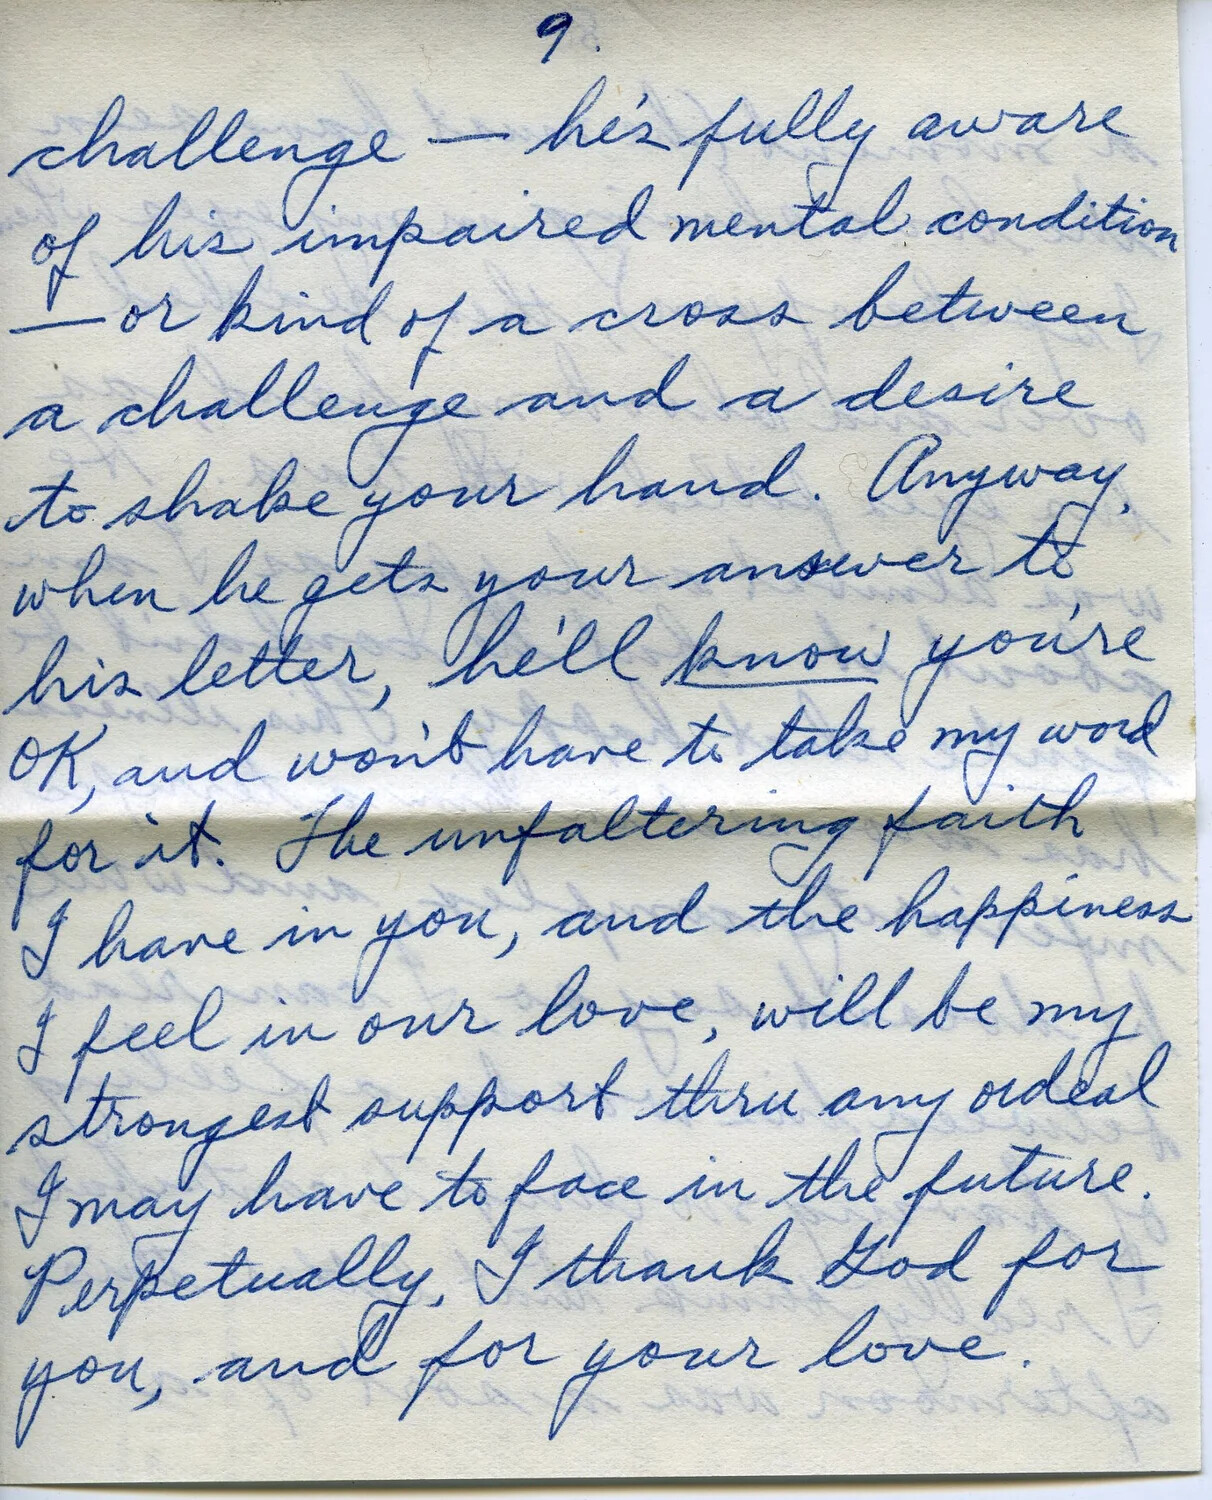 9.
challenge — he's fully aware
of his impaired mental condition
— or kind of a cross between
a challenge and a desire
to shake your hand. Anyway,
when he gets your answer to
his letter, he'll know you're
OK, and won't have to take my word
for it. The unfaltering faith
I have in you, and the happiness
I feel in our love, will be my
strongest support thru any ordeal
I may have to face in the future.
Perpetually, I thank God for
you, and for your love.